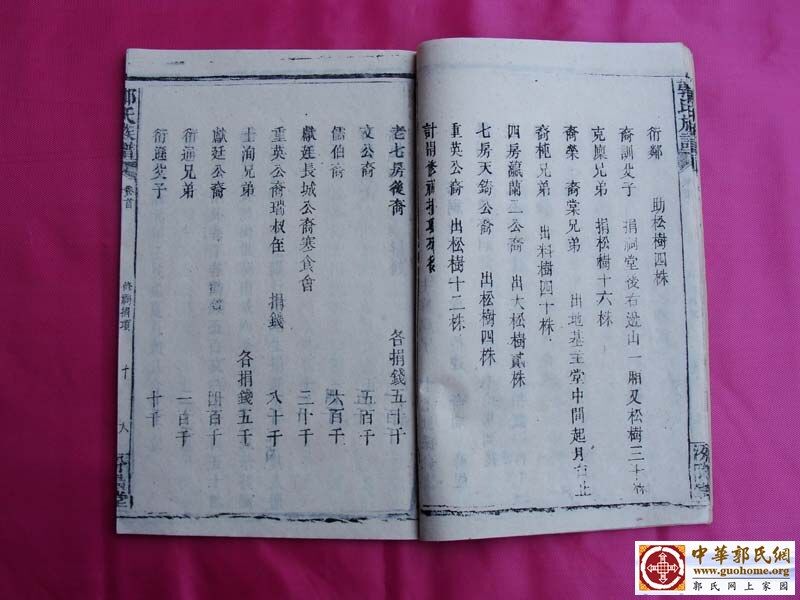 郭氏族譜
衍鄰 助松樹四株
裔訓父子 捐祠堂後右邊山一廂又松樹三十
克糜兄弟 捐松樹十六株
裔榮 裔棠兄弟 出地基主堂中間起月台止
裔純兄弟 出料樹四十株
四房瀛蘭二公裔 出大松樹貳株
七房天錫公裔 出松樹四株
重英公裔 出松樹十二株
計捐修
老七房後裔 各捐錢五十千
文公裔 五百千
儒伯裔 六百千
獻廷長城公裔寒食會 三十千
重英公裔瑞叔侄 捐錢 八十千
士洵兄弟 各捐錢五千
獻廷公裔 百千
衍通兄弟 一百千
衍遜父子 十千
郭氏族譜
卷首
修 捐項
十
中華郭氏網
www.guohome.org
郭氏网上家园